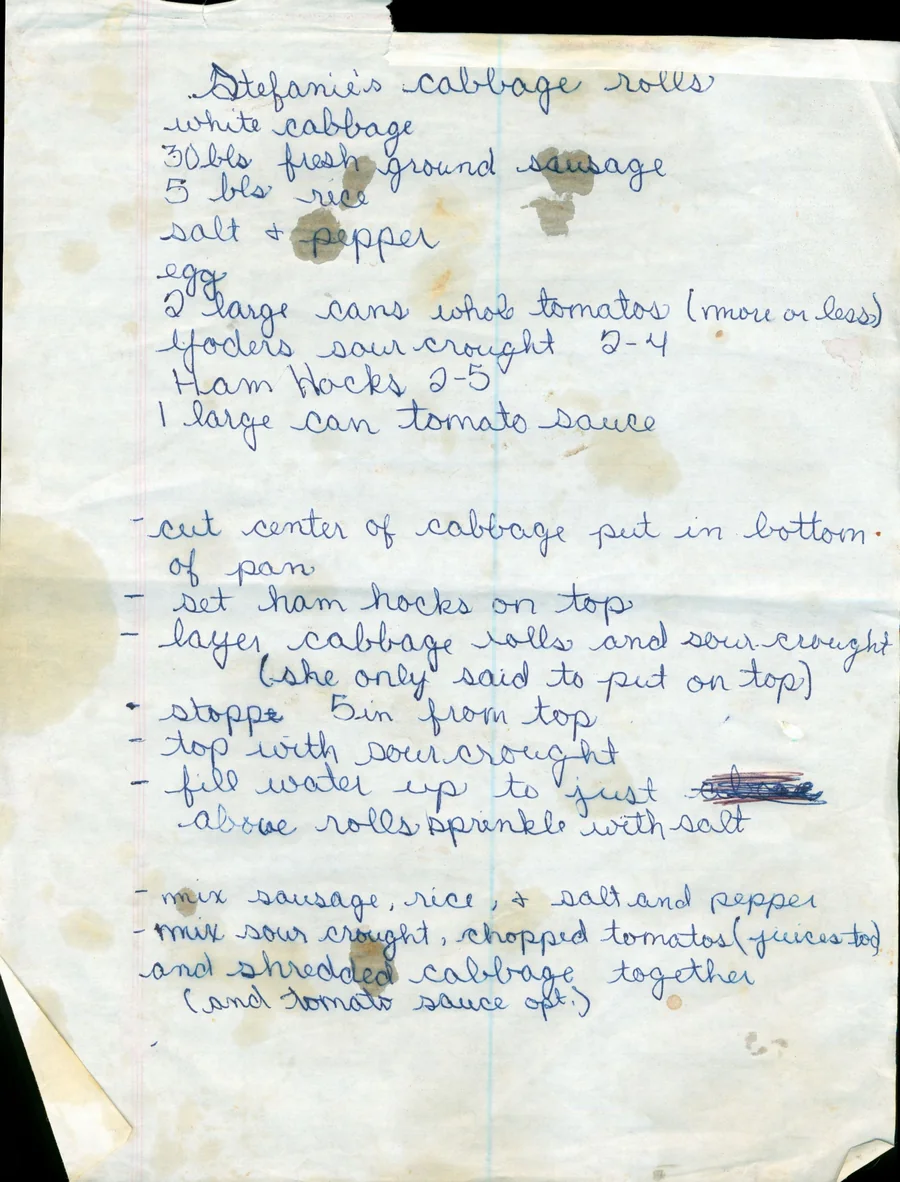 Stefanie's cabbage rolls
white cabbage
30 bls fresh ground sausage
5 bls rice
salt + pepper
egg
2 large cans whole tomatos (more or less)
Yoders sour crought 2-4
Ham Hocks 2-5
1 large can tomato sauce
- cut center of cabbage put in bottom
of pan
- set ham hocks on top
- layer cabbage rolls and sour crought
(she only said to put on top)
- stoppe 5in from top
- top with sour crought
- fill water up to just
above rolls sprinkle with salt
- mix sausage, rice, + salt and pepper
- mix sour crought, chopped tomatos (juices to)
and shredded cabbage together
(and tomato sauce opt.)